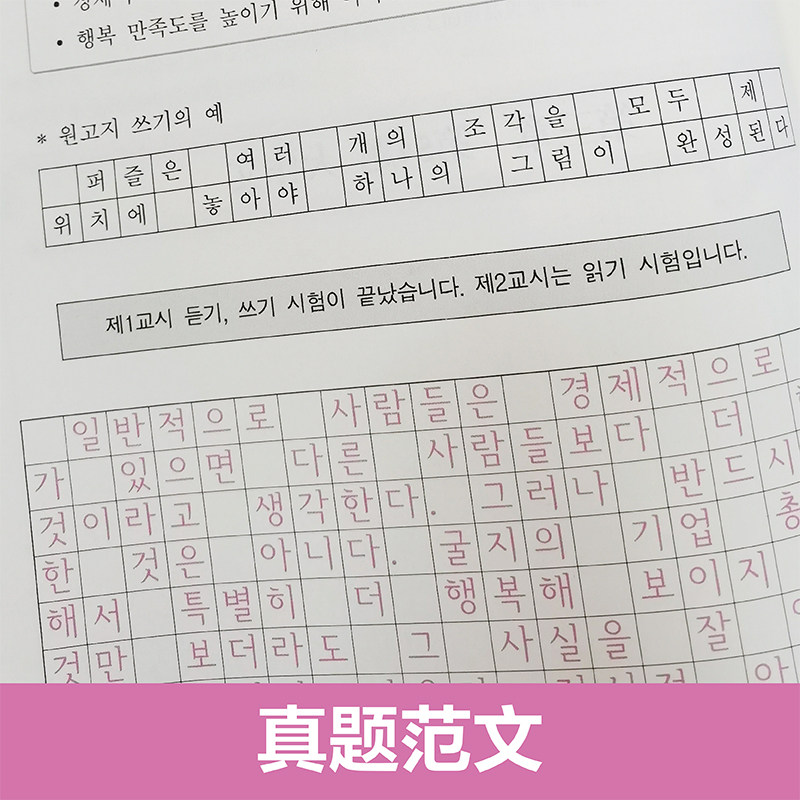 • 행복 만족도를 높이기 위해
* 원고지 쓰기의 예
퍼즐은 여러 개의 조각을 모두 제
위치에 놓아야 하나의 그림이 완성된다
제1교시 듣기, 쓰기 시험이 끝났습니다. 제2교시는 읽기 시험입니다.
일반적으로 사람들은 경제적으로
가 있으면 다른 사람들보다 더
것이라고 생각한다. 그러나 반드시
한 것은 아니다. 굴지의 기업 총
해서 특별히 더 행복해 보이지
것만 보더라도 그 사실을 잘
真题范文